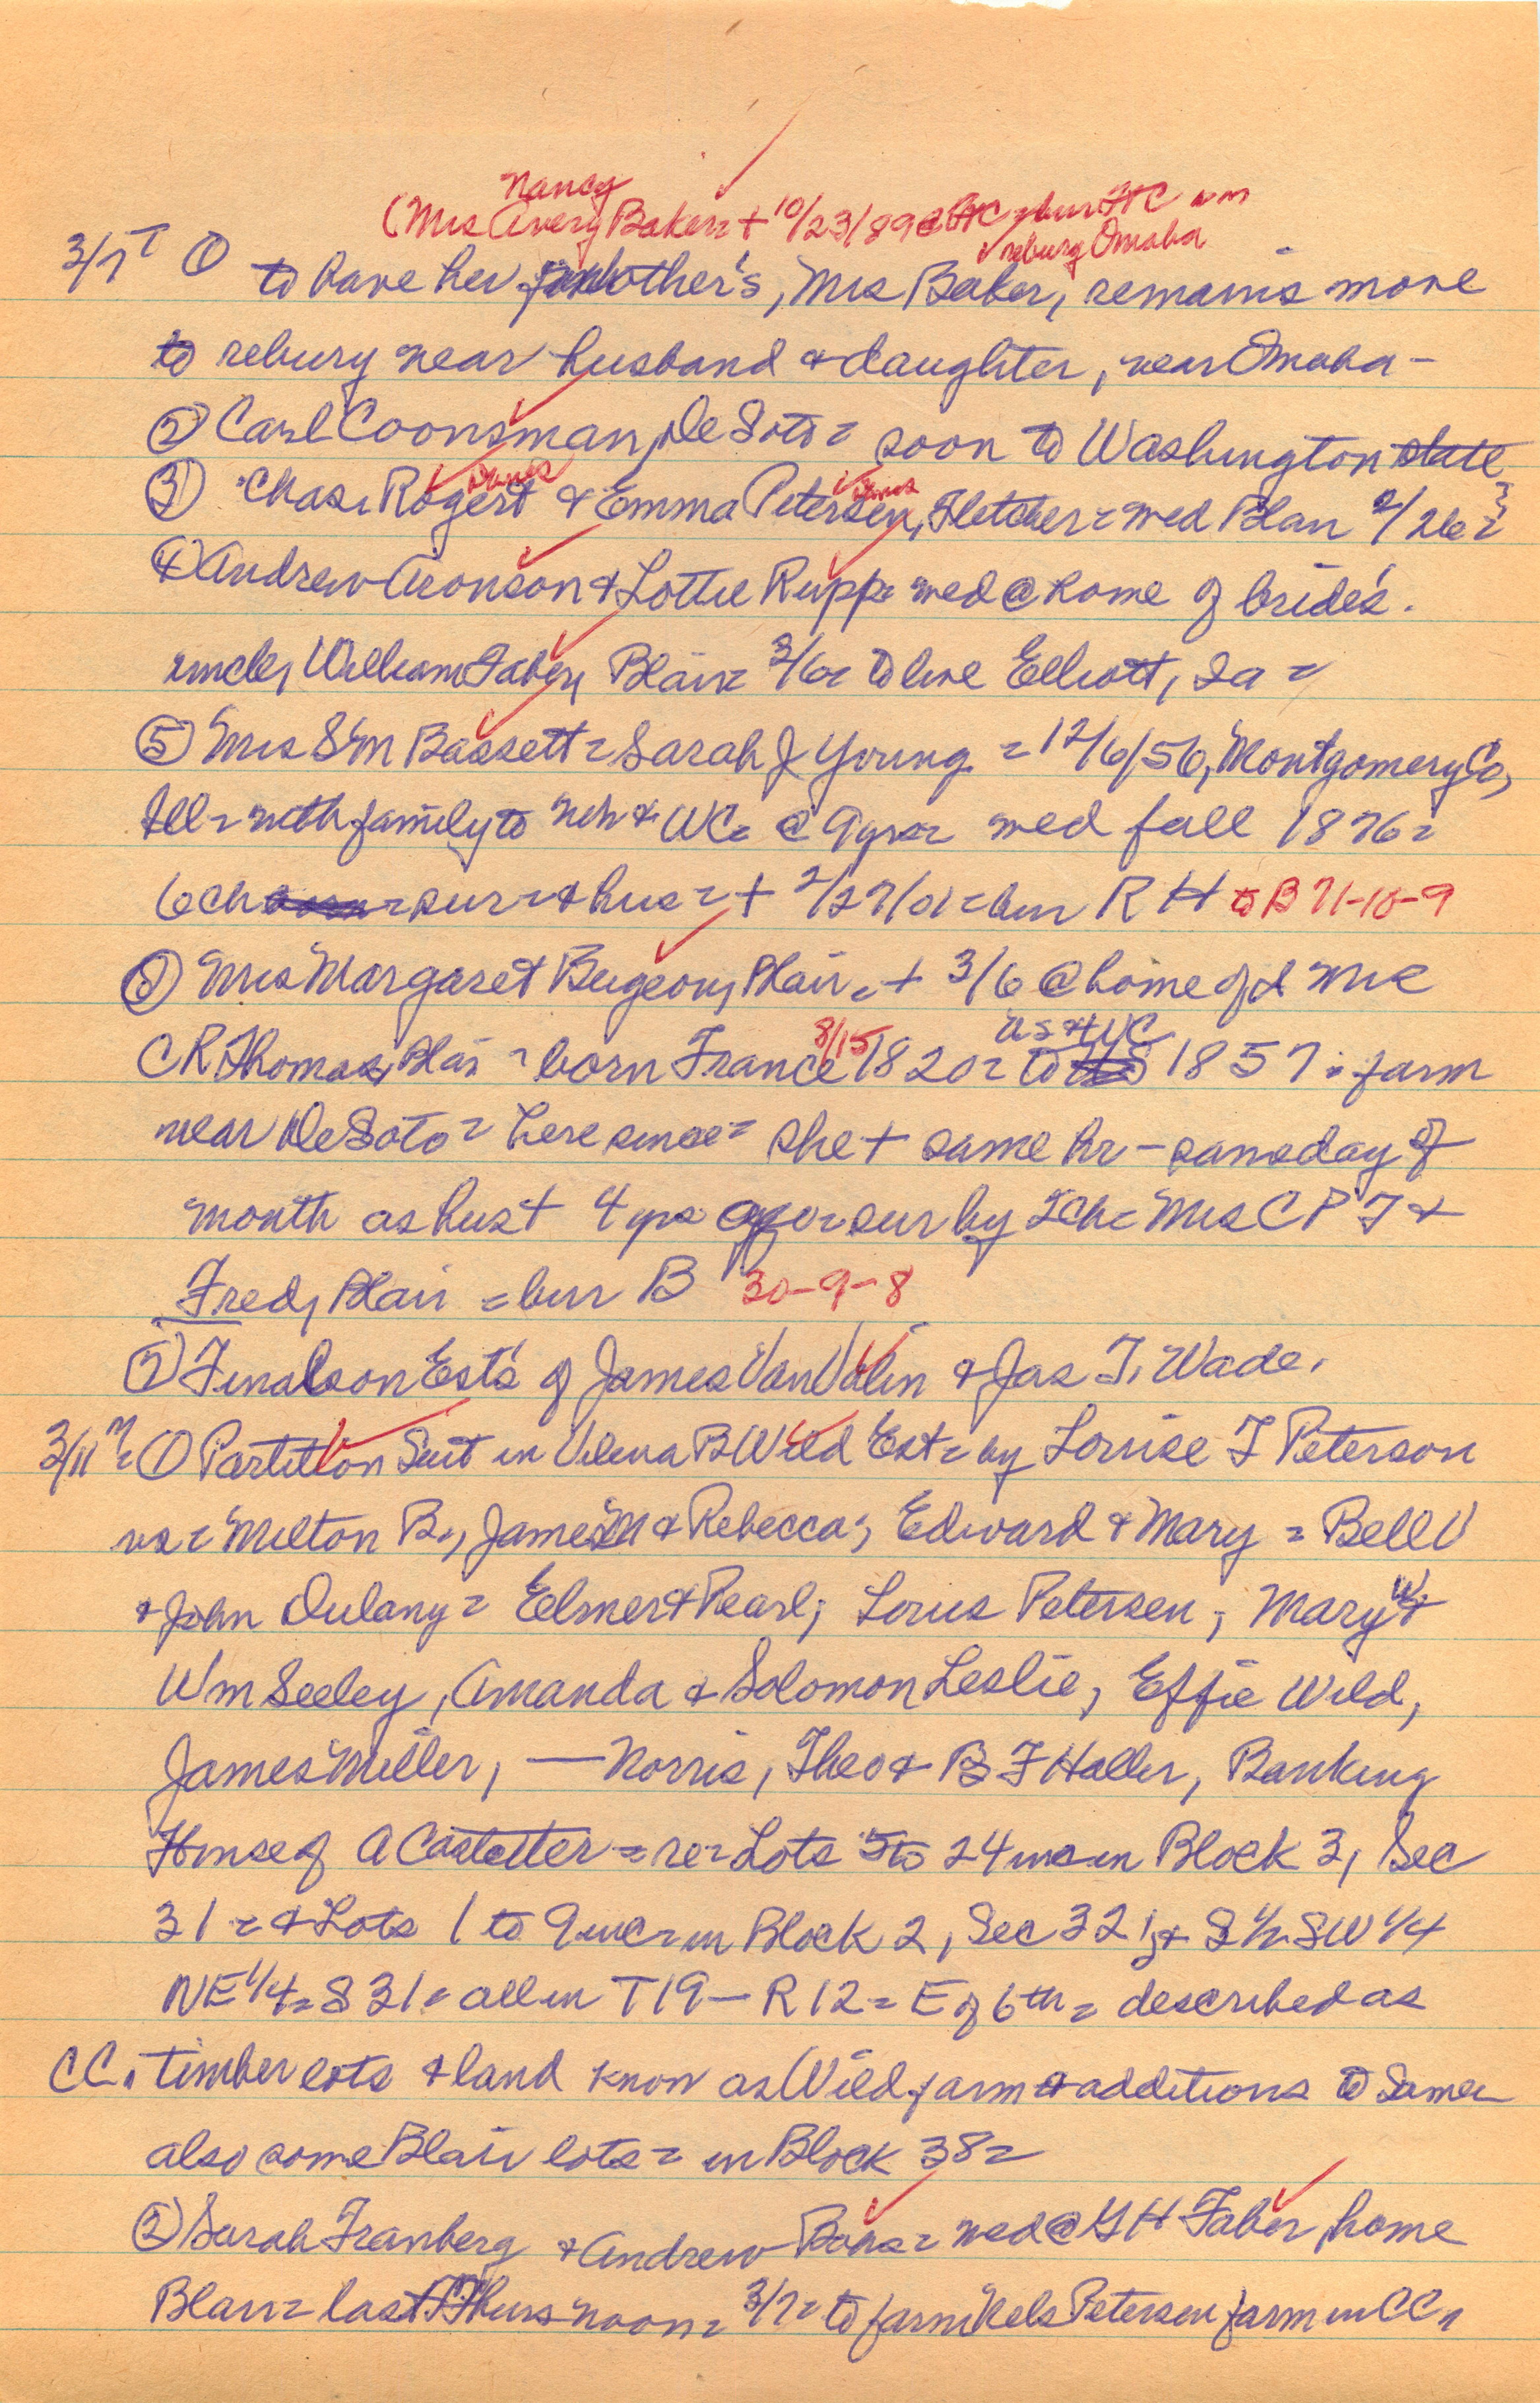 Nancy
(Mrs Avery Baker = + 10/23/89 @ FtC = bur FtC rem
reburg Omaha
3/7 T ① to have her mother's, Mrs Baker, remains move
to rebury near husband & daughter, near Omaha -
② Carl Coonsman, DeSoto = soon to Washington state
Danes Danes
③ Chas. Rogert & Emma Petersen, Fletcher = wed Blair 2/26 =
④ Andrew Aronson & Lottie Rupp = wed @ home of bride's
uncle, William Faber, Blair = 3/6 = to live Elliott, Ia =
⑤ Mrs S M Bassett = Sarah J Young = 12/6/56, Montgomery Co,
Ill = with family to Neb & WC = @ 9 yrs = wed fall 1876 =
6 ch = sur = & hus = + 2/27/01 = bur R H to B 71-10-9
⑥ Mrs Margaret Bugeon, Blair, = + 3/6 @ home of d Mrs
US & WC
C R Thomas, Blair = born France 8/15 1820 = to US 1857 = farm
near DeSoto = here since = she + same hr - same day of
month as hus + 4 yrs ago = sur by 2 ch = Mrs C P T &
Fred, Blair = bur B 30-9-8
⑦ Finals on Ests of James Van Valin & Jas T. Wade.
3/11 M = ① Partition Suit in Velena B Wild Est = by Louise F Peterson
vs = Milton B., James M & Rebecca; Edward & Mary = Bell V
& John Dulany = Elmer & Pearl; Louis Petersen; Mary W. &
Wm Seeley, Amanda & Solomon Leslie, Effie Wild,
James Miller, — Norris, Theo & B F Haller, Banking
House of A Castetter = re = Lots 5 to 24 inc in Block 3, Sec
31 = & Lots 1 to 9 inc = in Block 2, Sec 32; & S 1/2 SW 1/4
NE 1/4 = S 31 = all in T 19 - R 12 = E of 6th = described as
CC. timber lots & land know as Wild farm & additions to same
also some Blair lots = in Block 38 =
② Sarah Franberg & Andrew = wed @ G H Faber home
Blair = last Thurs noon = 3/7 = to farm Nels Petersen farm in CC,